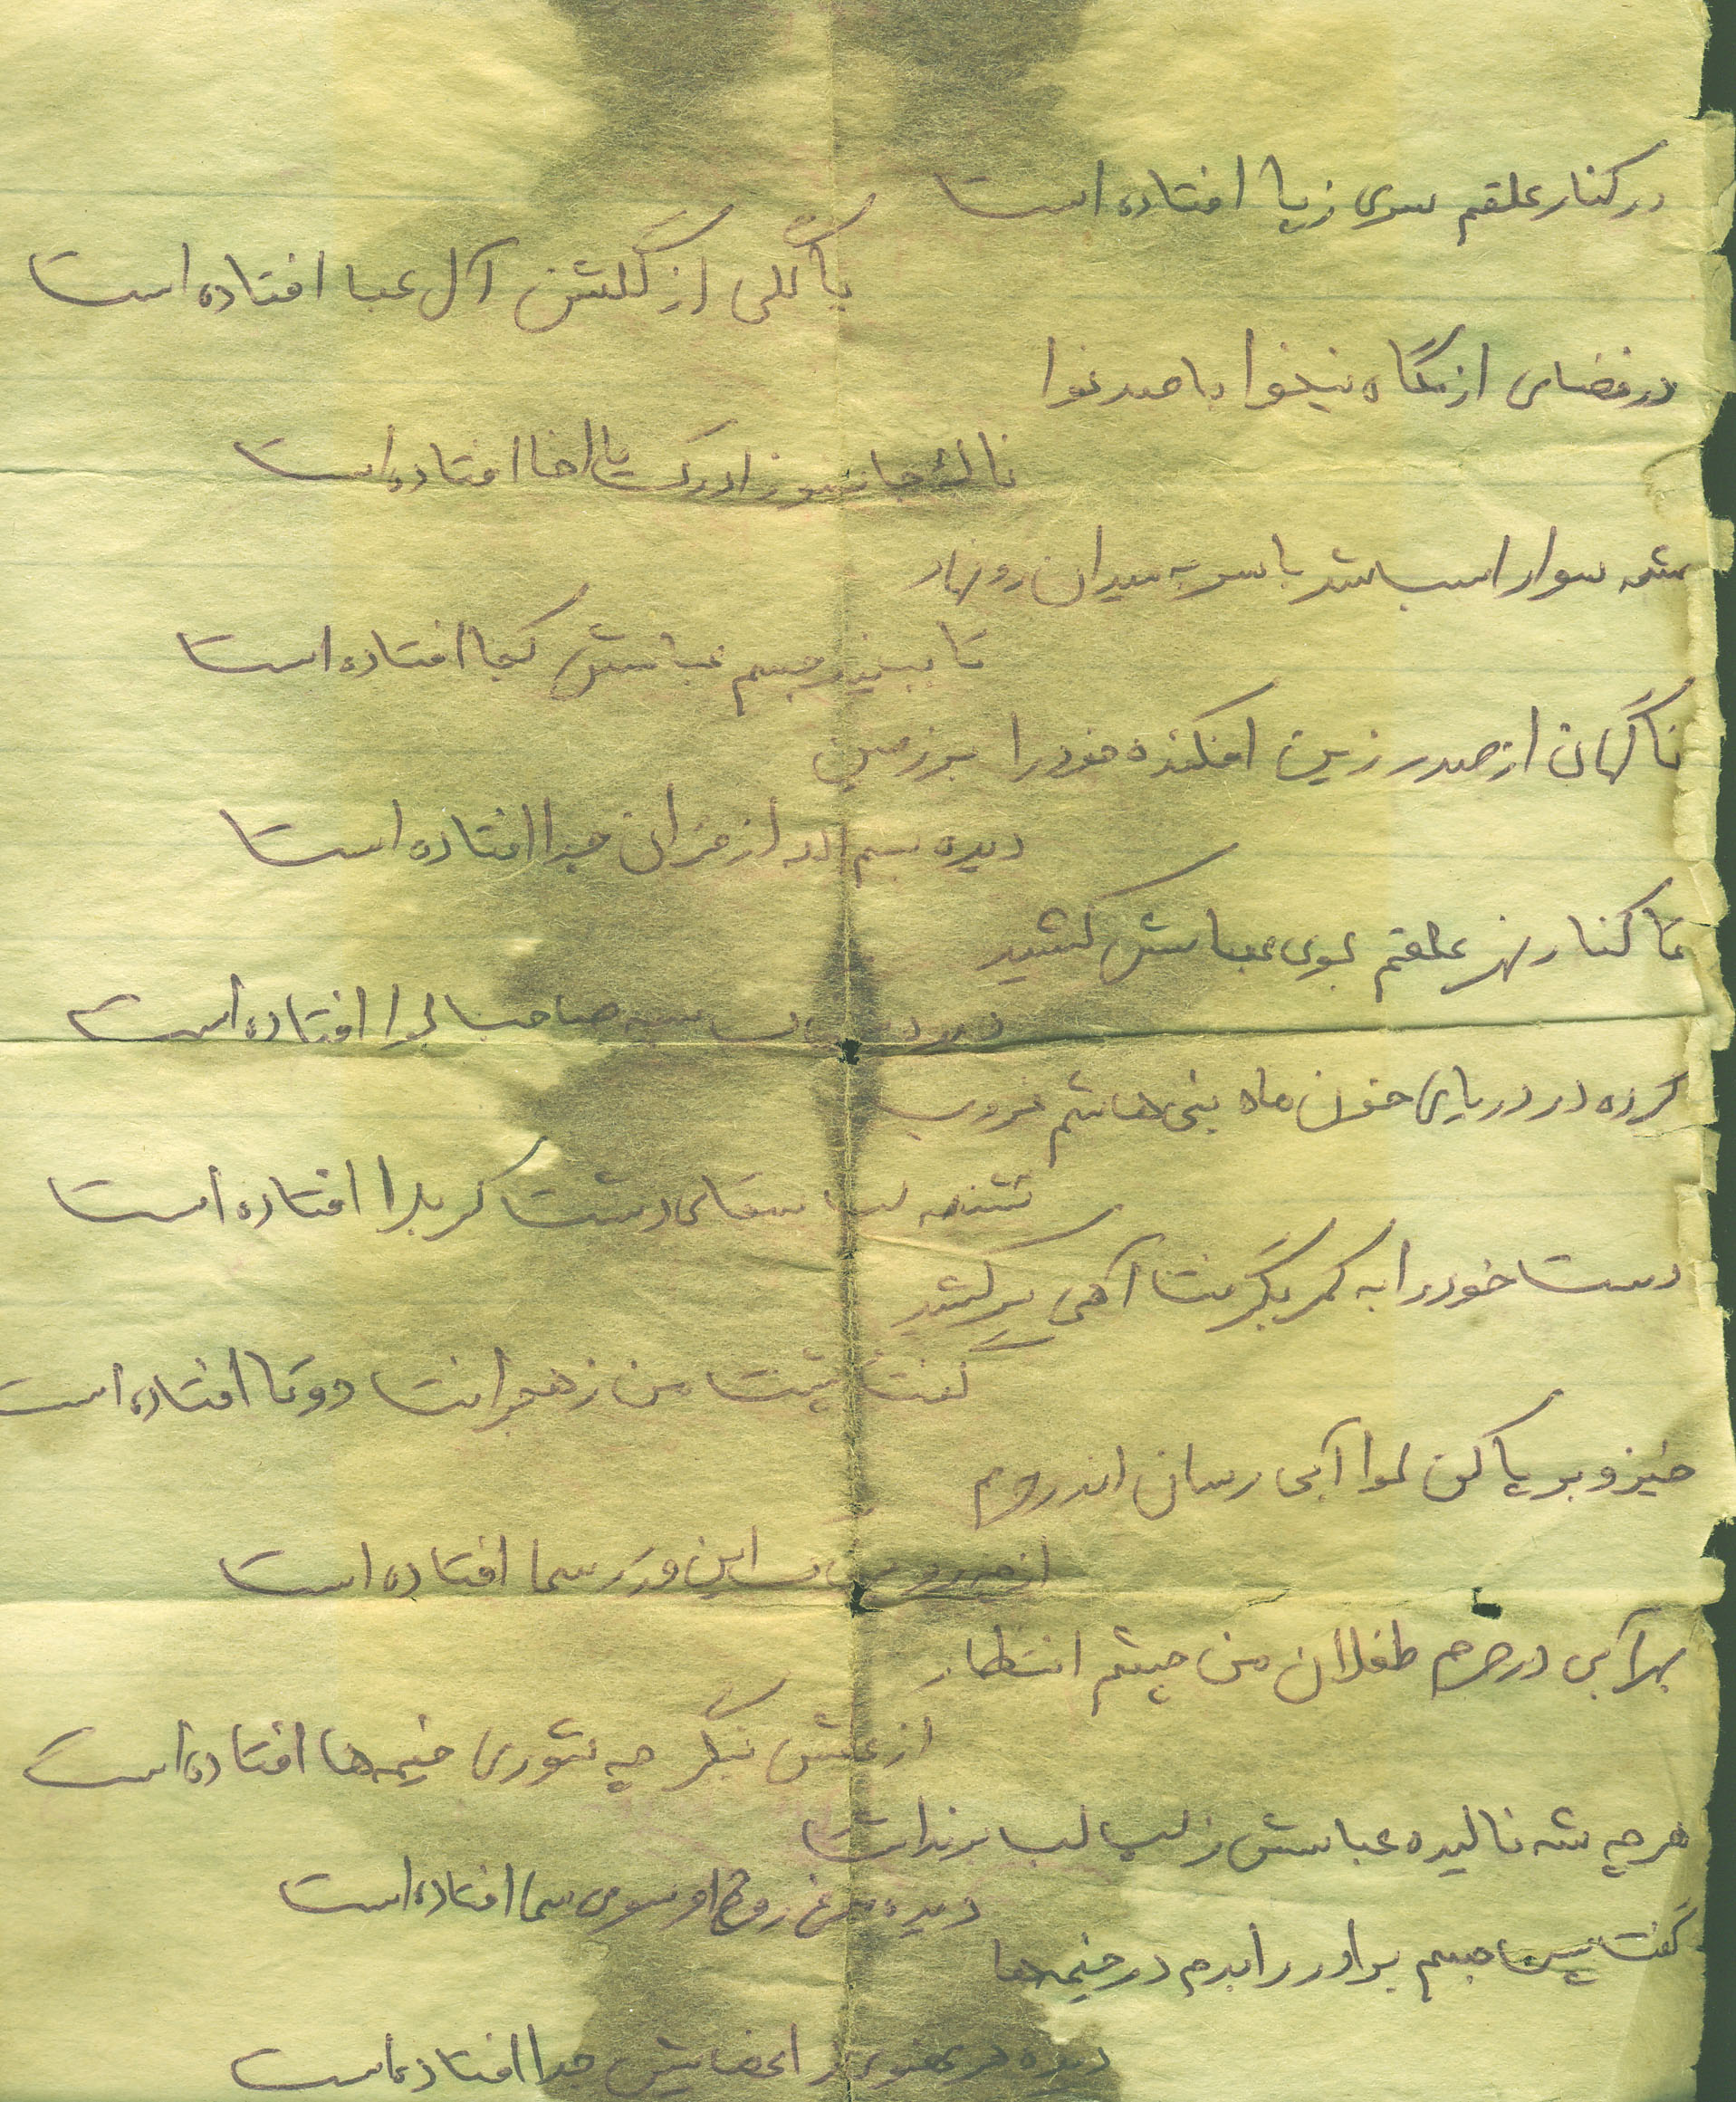 در کنار علقم سوی ز پا افتاده است
یا گلی از گلشن آل عبا افتاده است
در فضای ازمگاه نینوا با صد نوا
ناله جانسوز ادرکت یا اخا افتاده است
شه سوار اسب شد با سر به میدان رو نهاد
تا ببیند جسم عباسش کجا افتاده است
ناگهان از صدر زین افکنده خود را بر زمین
دیده بسم الله از قران جدا افتاده است
تا کنار نهر علقم بوی عباسش کشید
دید صاحب لوا افتاده است
کرده در دریای خون ماه بنی هاشم غروب
تشنه لب سقای دشت کربلا افتاده است
دست خود را به کمر بگرفت آهی بر کشید
گفت پشت من ز هجرانت دوتا افتاده است
خیز و بر پا کن لوا آبی رسان اندر حرم
از این و سما افتاده است
بهر آبی در حرم طفلان من چشم انتظار
از عطش بنگر چه شوری خیمه ها افتاده است
هر چه شه نالیده عباسش ز لب لب برنداشت
دیده مرغ روح او سوی سما افتاده است
گفت پس جسم برادر را برم در خیمه ها
دیده هر عضوی از اعضایش جدا افتاده است